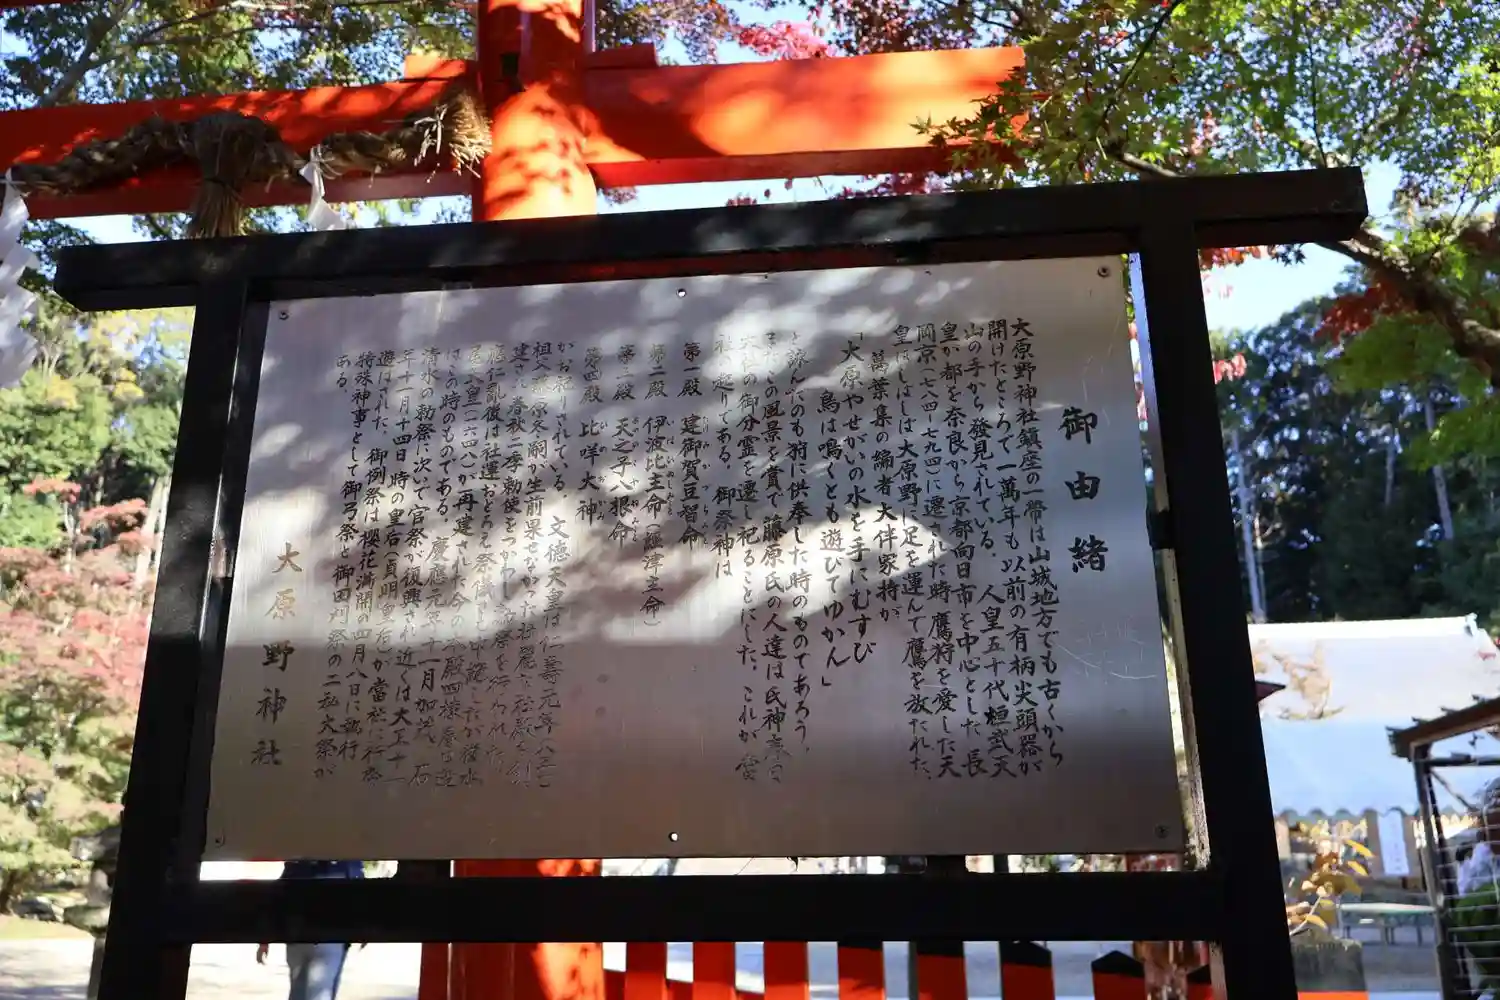 御由緒
大原野神社鎮座の一帯は山城地方でも古くから
開けたところで一萬年も以前の有柄尖頭器が
山の手から發見されている 人皇五十代桓武天
皇が都を奈良から京都向日市を中心とした長
岡京(七八四-七九四)に遷された時鷹狩を愛した天
皇はしばしば大原野に足を運んで鷹を放たれた、
萬葉集の編者大伴家持が
「大原やせがいの水を手にむすび
鳥は鳴くとも遊びてゆかん」
と詠んだのも狩に供奉した時のものであろう、
この風景を賞で藤原氏の人達は氏神春日
大社の御分霊を遷し祀ることにした、これが當
社の起りである、御祭神は
第一殿 建御賀豆智命
第二殿 伊波比主命(經津主命)
第三殿 天之子八根命
第四殿 比咩大神
がお祀りされている、文徳天皇は仁壽元年
祖父藤原冬嗣が生前果せなかった壮麗な社殿を
建され春秋二季勅使をつかわし
應仁亂後は社運おとろえ祭儀も中絶したが後水
尾天皇(一六四八)が再建された今の本殿四棟
はこの時のものである、慶應元年十一月加茂、石
清水の勅祭に次いで官祭が復興され近くは大正十一
年十一月十四日時の皇后(貞明皇后)が當社に行啓
遊ばされた、御例祭は櫻花満開の四月八日に執行
特殊神事として御弓祭と御田刈祭の二私大祭が
ある、
大原野神社